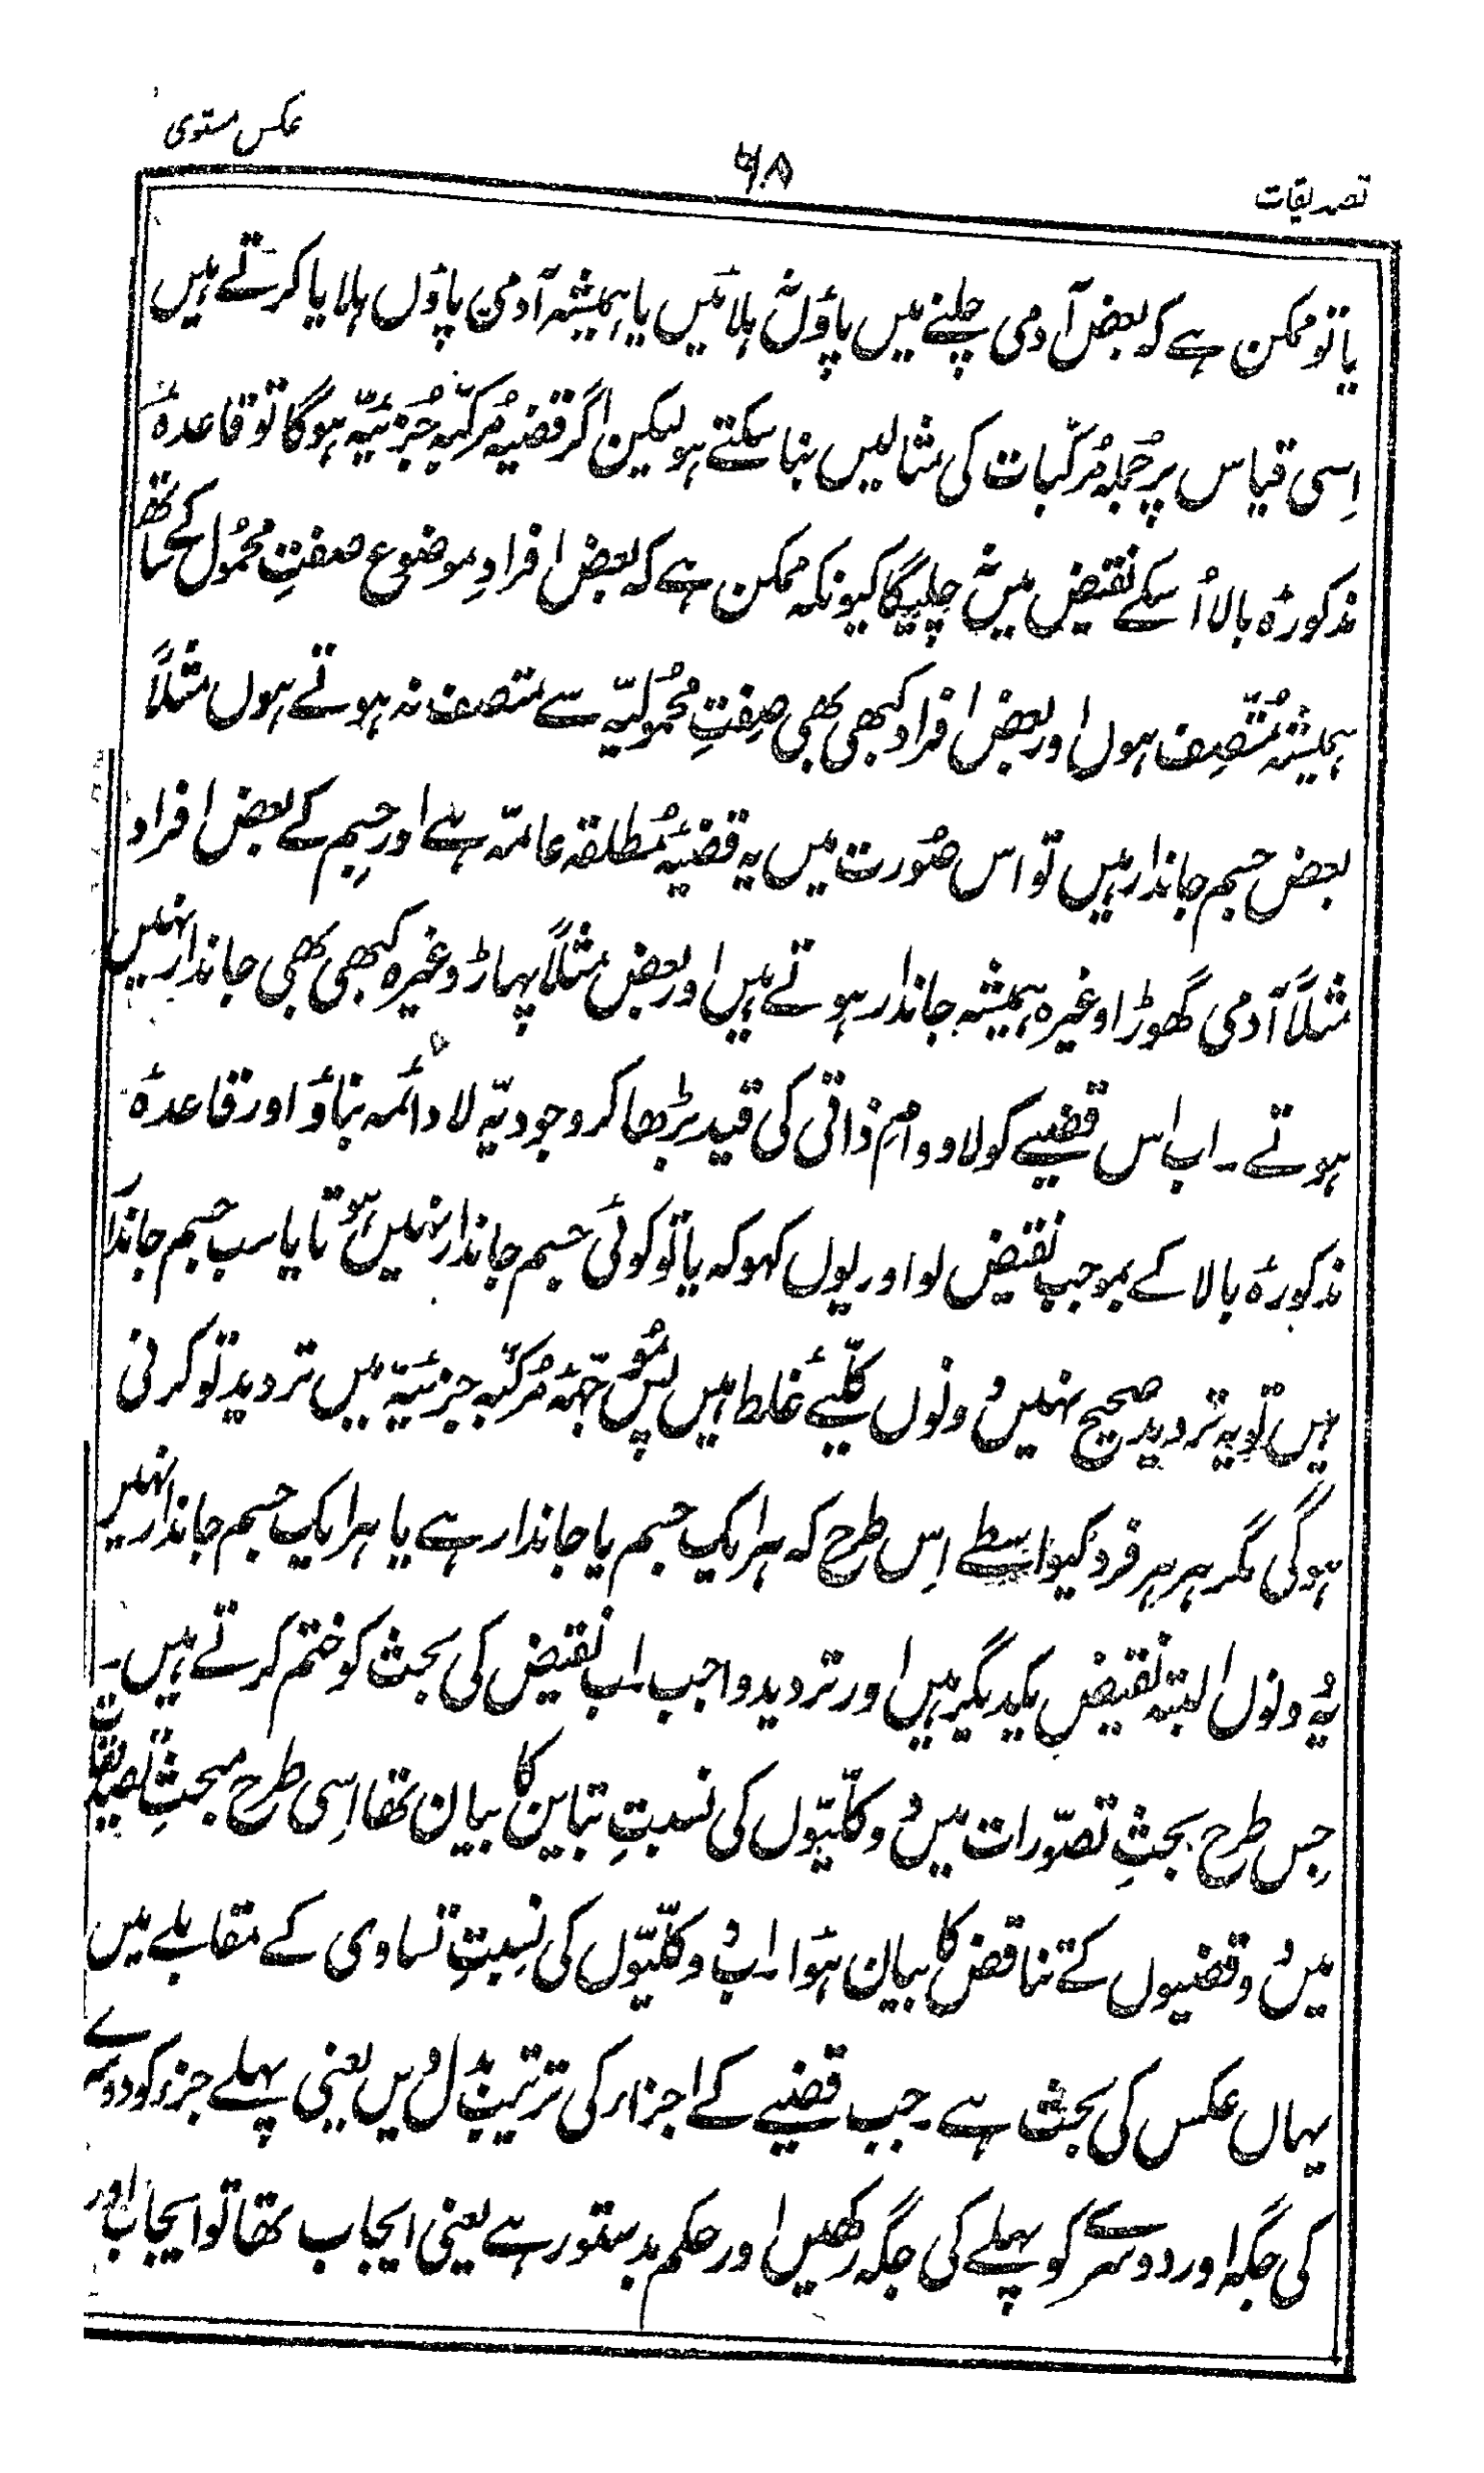 تصدیقات
۶۸
عکس مستوی
یا تو ممکن ہے کہ بعض آدمی چلنے میں پاؤں نہ ہلائیں یا ہمیشہ آدمی پاؤں ہلایا کرتے ہیں
اِسی قیاس پر جُملہ مُرکّبات کی مثالیں بنا سکتے ہو لیکن اگر قضیہ مُرکّبہ جُزئیّہ ہوگا تو قاعدۂ
مذکورۂ بالا اُسکے نقیض میں نہ چلیگا کیونکہ ممکن ہے کہ بعض افرادِ موضوع صفتِ محمُول کے ساتھ
ہمیشہ مُتّصِف ہوں اور بعض افراد کبھی بھی صِفتِ محمُولیّہ سے متصف نہ ہوتے ہوں مثلاً
بعض جسم جاندار ہیں تو اس صُورت میں یہ قضیّہ مُطلقہ عامّہ ہے اور جِسم کے بعض افراد
مثلاً آدمی گھوڑا وغیرہ ہمیشہ جاندار ہوتے ہیں اور بعض مثلاً پہاڑ وغیرہ کبھی بھی جاندار نہیں
ہوتے ۔ اب اس قضیے کو لا دوامِ ذاتی کی قید بڑھا کر وجودیّہ لا دائمہ بناؤ اور قاعدۂ
مذکورۂ بالا کے بموجب نقیض لو اور یوں کہو کہ یا تو کوئی جسم جاندار نہیں ہوتا یا سب جسم جاندار
ہیں تو یہ تردید صحیح نہیں دونوں کلّیے غلط ہیں پس مُوجّہہ مُرکّبہ جزئیّہ میں تردید تو کرنی
ہوگی مگر ہر ہر فرد کیواسطے اِس طرح کہ ہر ایک جسم یا جاندار ہے یا ہر ایک جسم جاندار نہیں
یہ دونوں البتہ نقیض یکدیگر ہیں اور تردید واجب ۔ اب نقیض کی بحث کو ختم کرتے ہیں ۔
جِس طرح بحثِ تصوّرات میں دو کلّیّوں کی نسبتِ تباین کا بیان تھا اِسی طرح مبحثِ تصدیقات
میں دو قضیوں کے تناقض کا بیان ہوٗا ۔ اب دو کلّیّوں کی نِسبتِ تساوی کے مقابلے میں
یہاں عکس کی بحث ہے ۔ جب قضیے کے اجزاء کی ترتیب بدل دیں یعنی پہلے جزء کو دوسرے
کی جگہ اور دوسرے کو پہلے کی جگہ رکھیں اور حکم بدستور رہے یعنی ایجاب تھا تو ایجاب اور